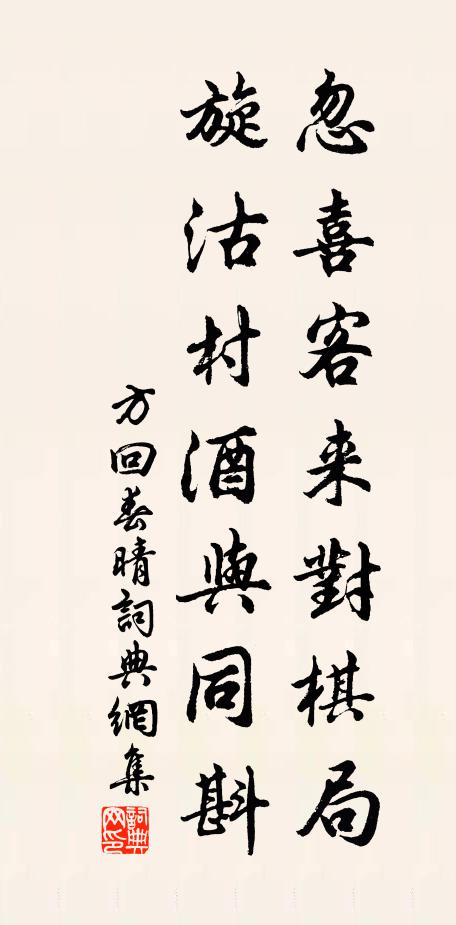 忽喜客来對棋局
旋沽村酒與同斟
方回春晴詞典網集
詞典网印